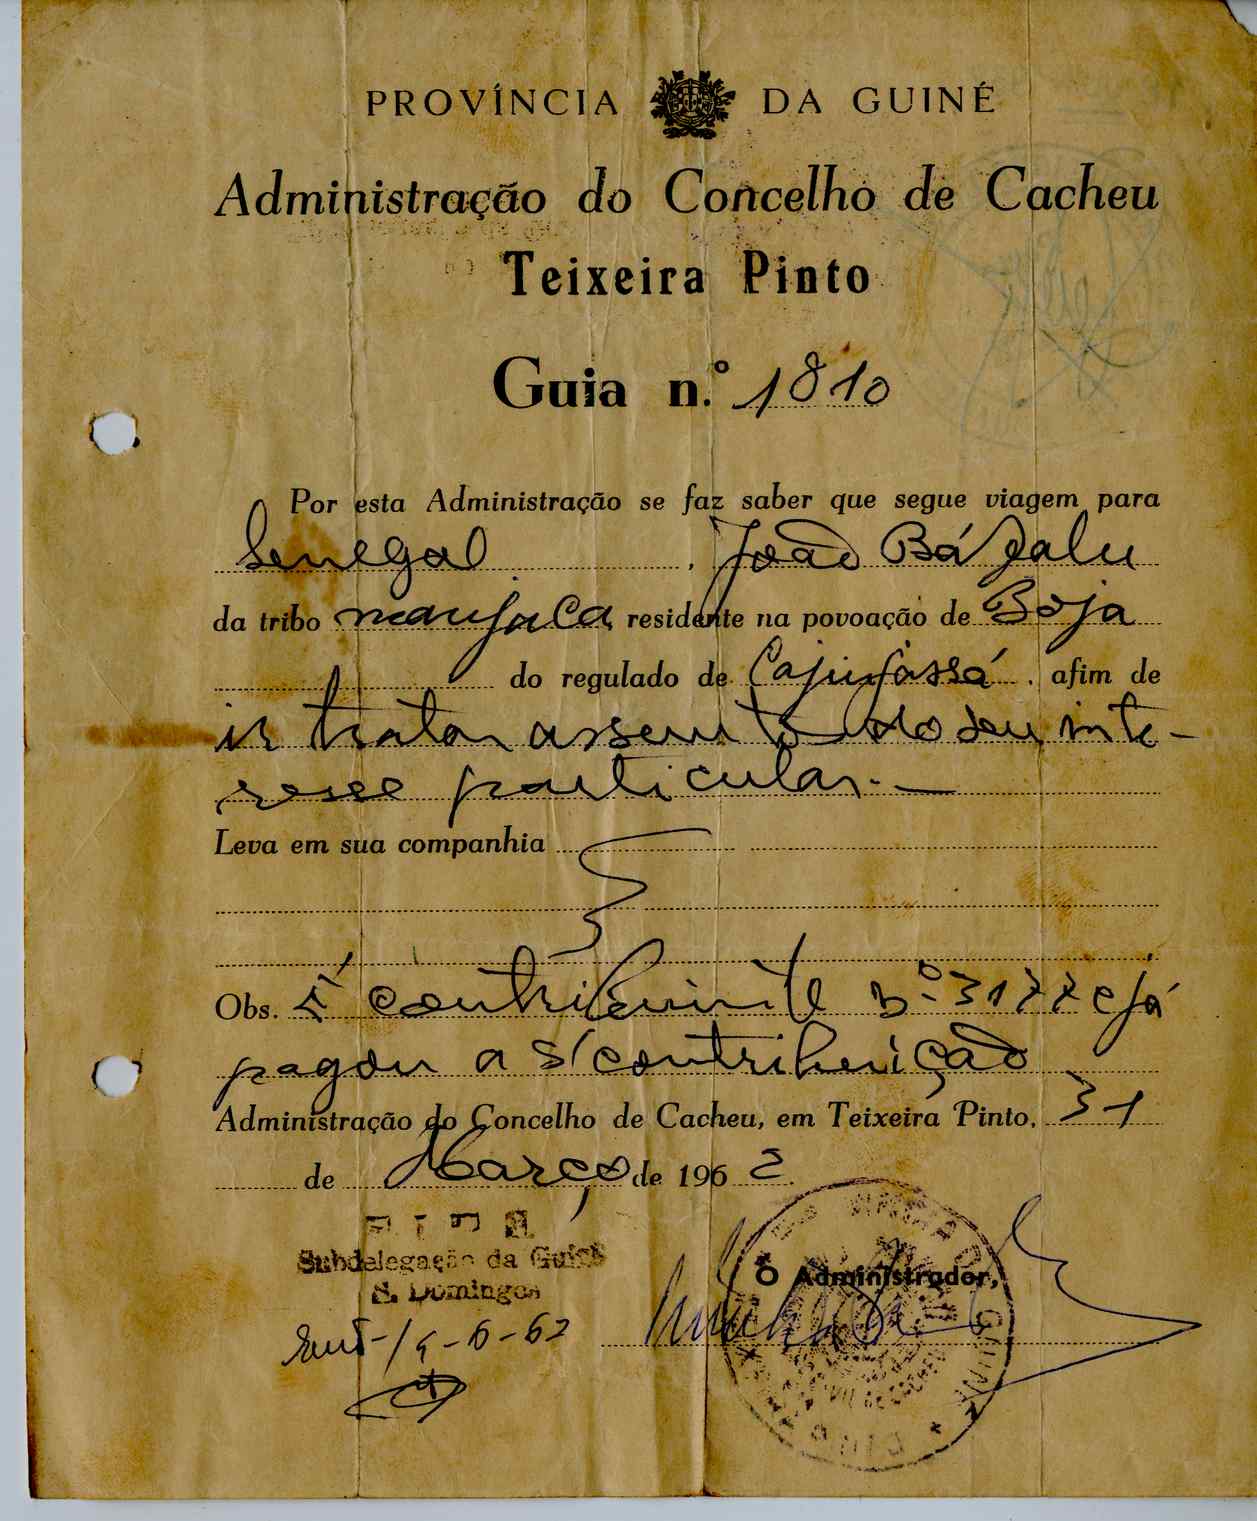 PROVÍNCIA DA GUINÉ
Administração do Concelho de Cacheu
Teixeira Pinto
Guia n.º 1810
Por esta Administração se faz saber que segue viagem para
Senegal, João Bá
da tribo manjaca, residente na povoação de Boja
do regulado de, afim de
ir tratar assunto do seu inte-
resse particular.—
Leva em sua companhia
Obs. É contribuinte n.º 3177 e já
pagou a s/contribuição
Administração do Concelho de Cacheu, em Teixeira Pinto, 31
de Março de 1962.
PIDE
Subdelegação da Guiné
S. Domingos
O Administrador,
-6-62